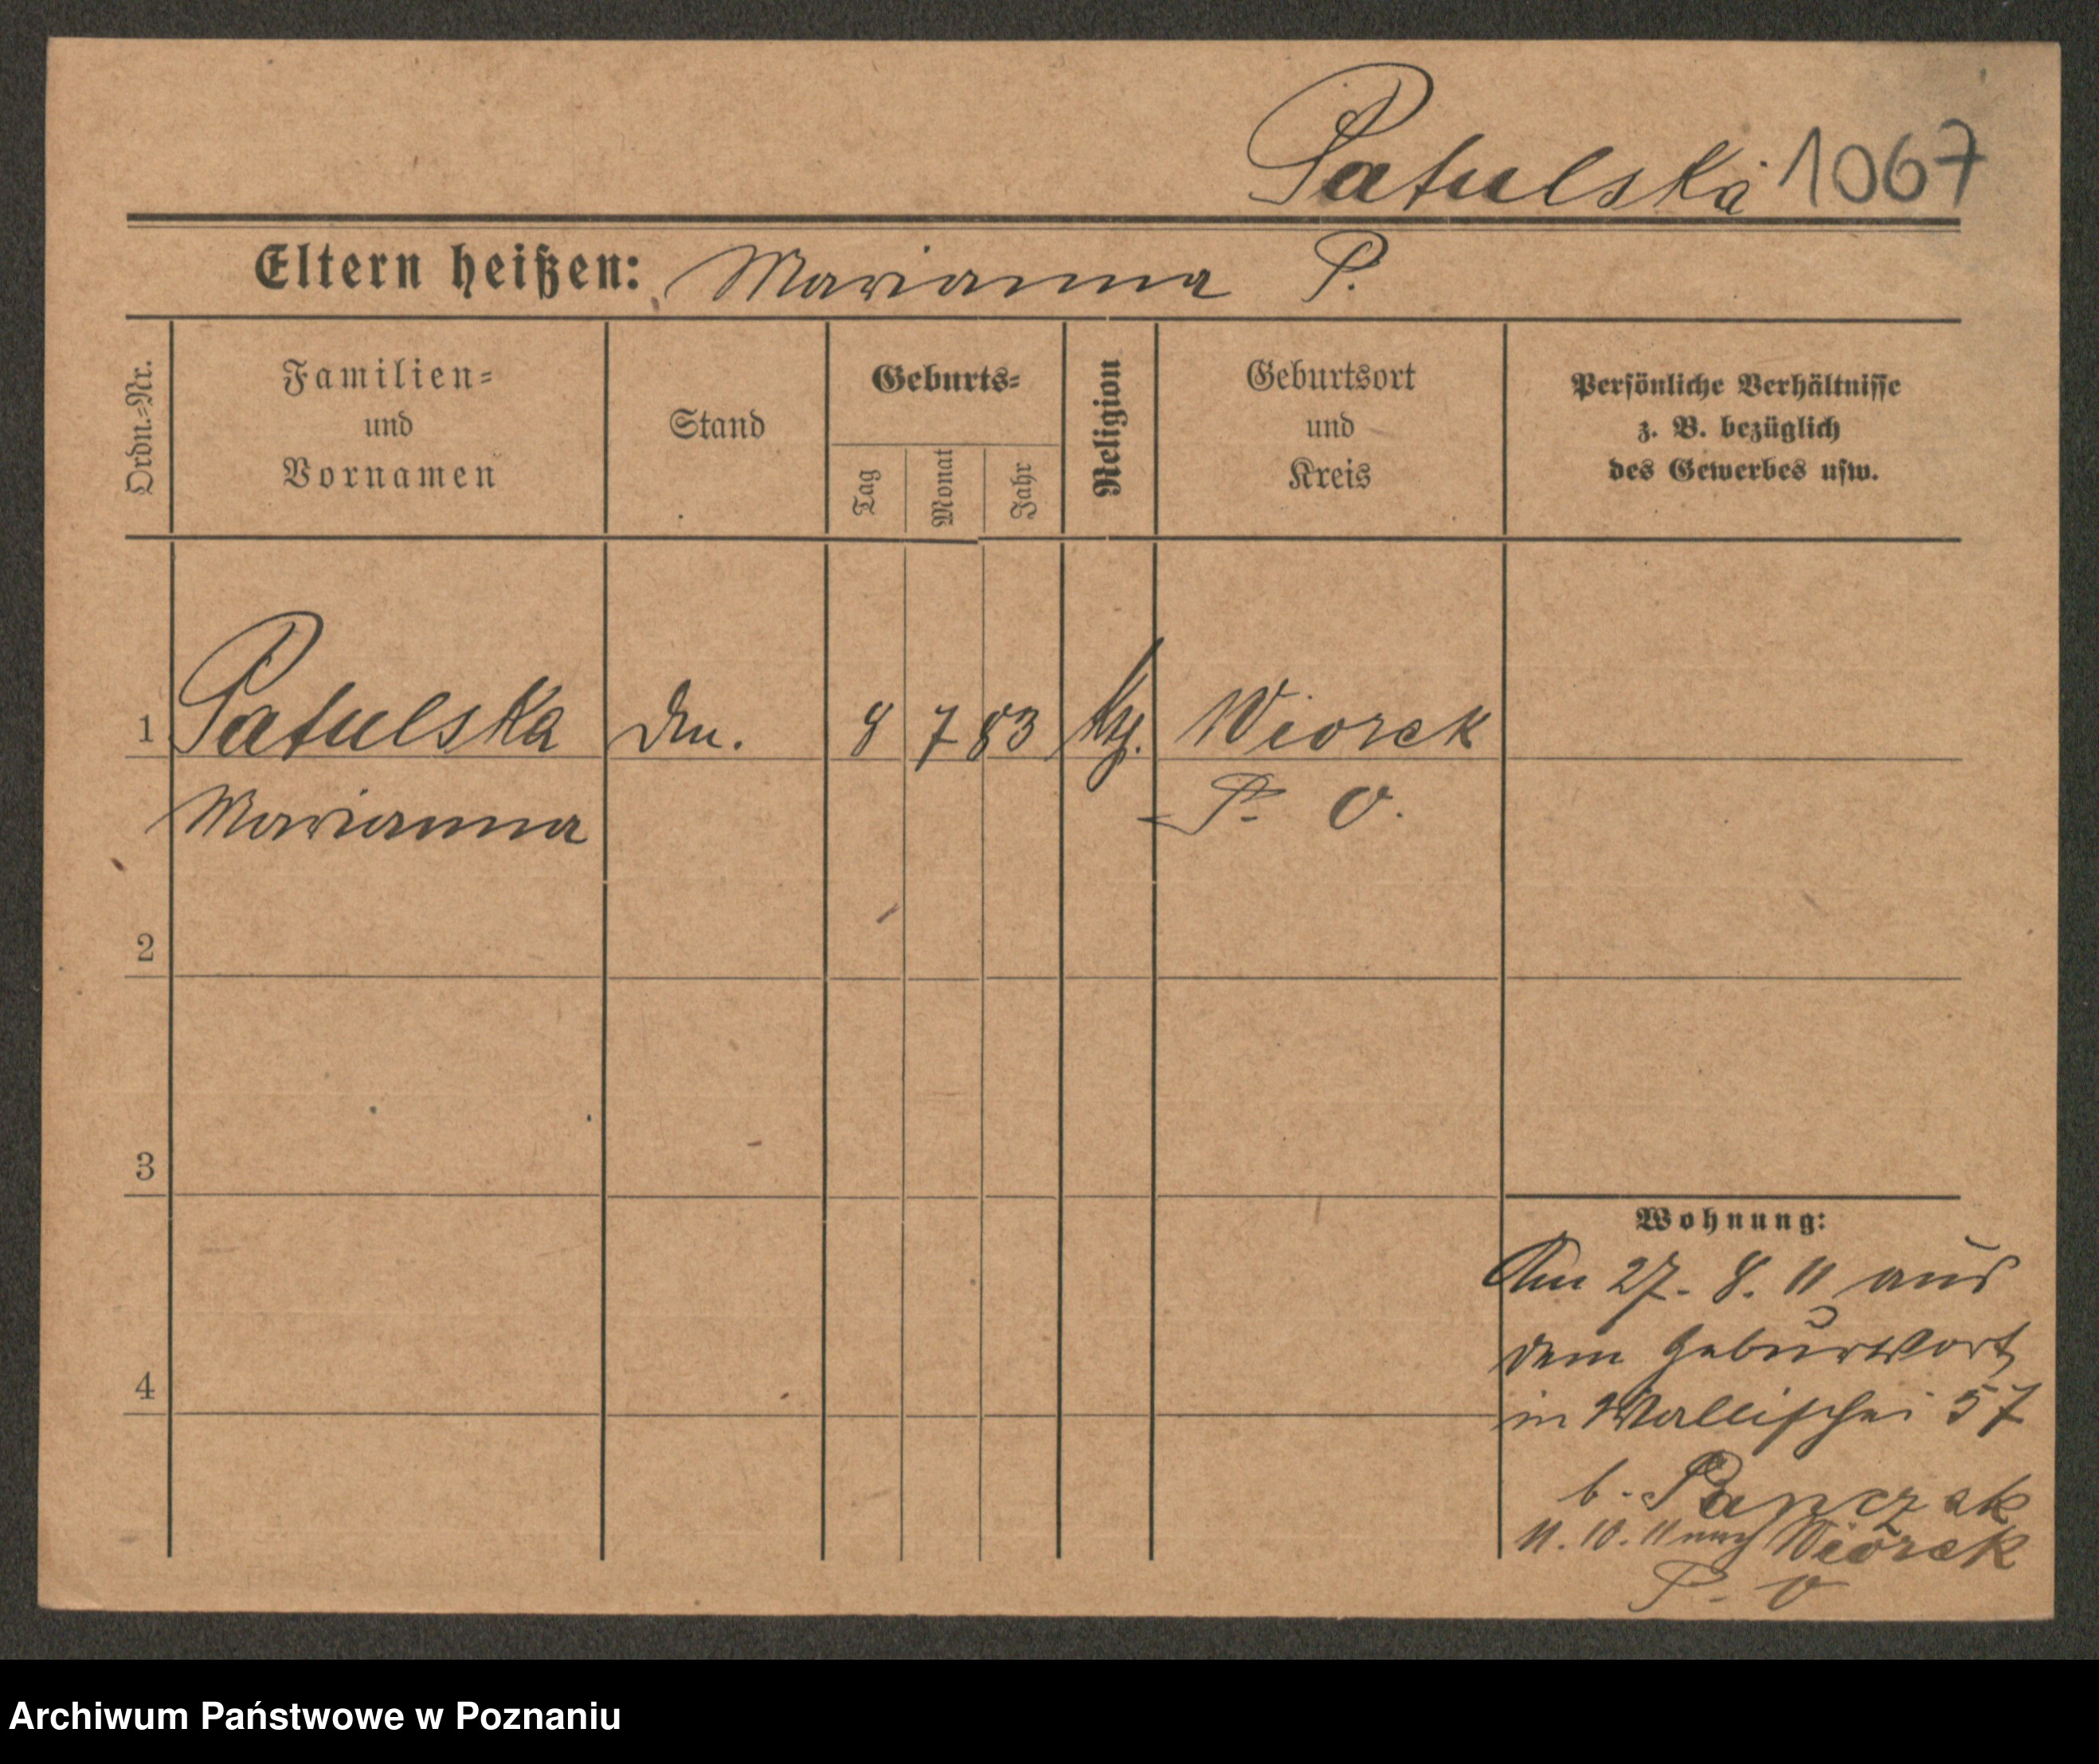 Patulska 1067
Eltern heißen: Marianna P.
Ordn.=Nr.
Familien=
und
Vornamen
Stand
Geburts=
Tag
Monat
Jahr
Religion
Geburtsort
und
Kreis
Persönliche Verhältnisse
z. B. bezüglich
des Gewerbes usw.
1 Patulska 8 7 83 Wiorek
Marianna P. O.
2
3
4
Wohnung:
Am 27. 8. 11 aus
dem Geburtsort
in Wallischei 57
b. Panczak
11. 10. 11 nach Wiorek
P. O
Archiwum Państwowe w Poznaniu